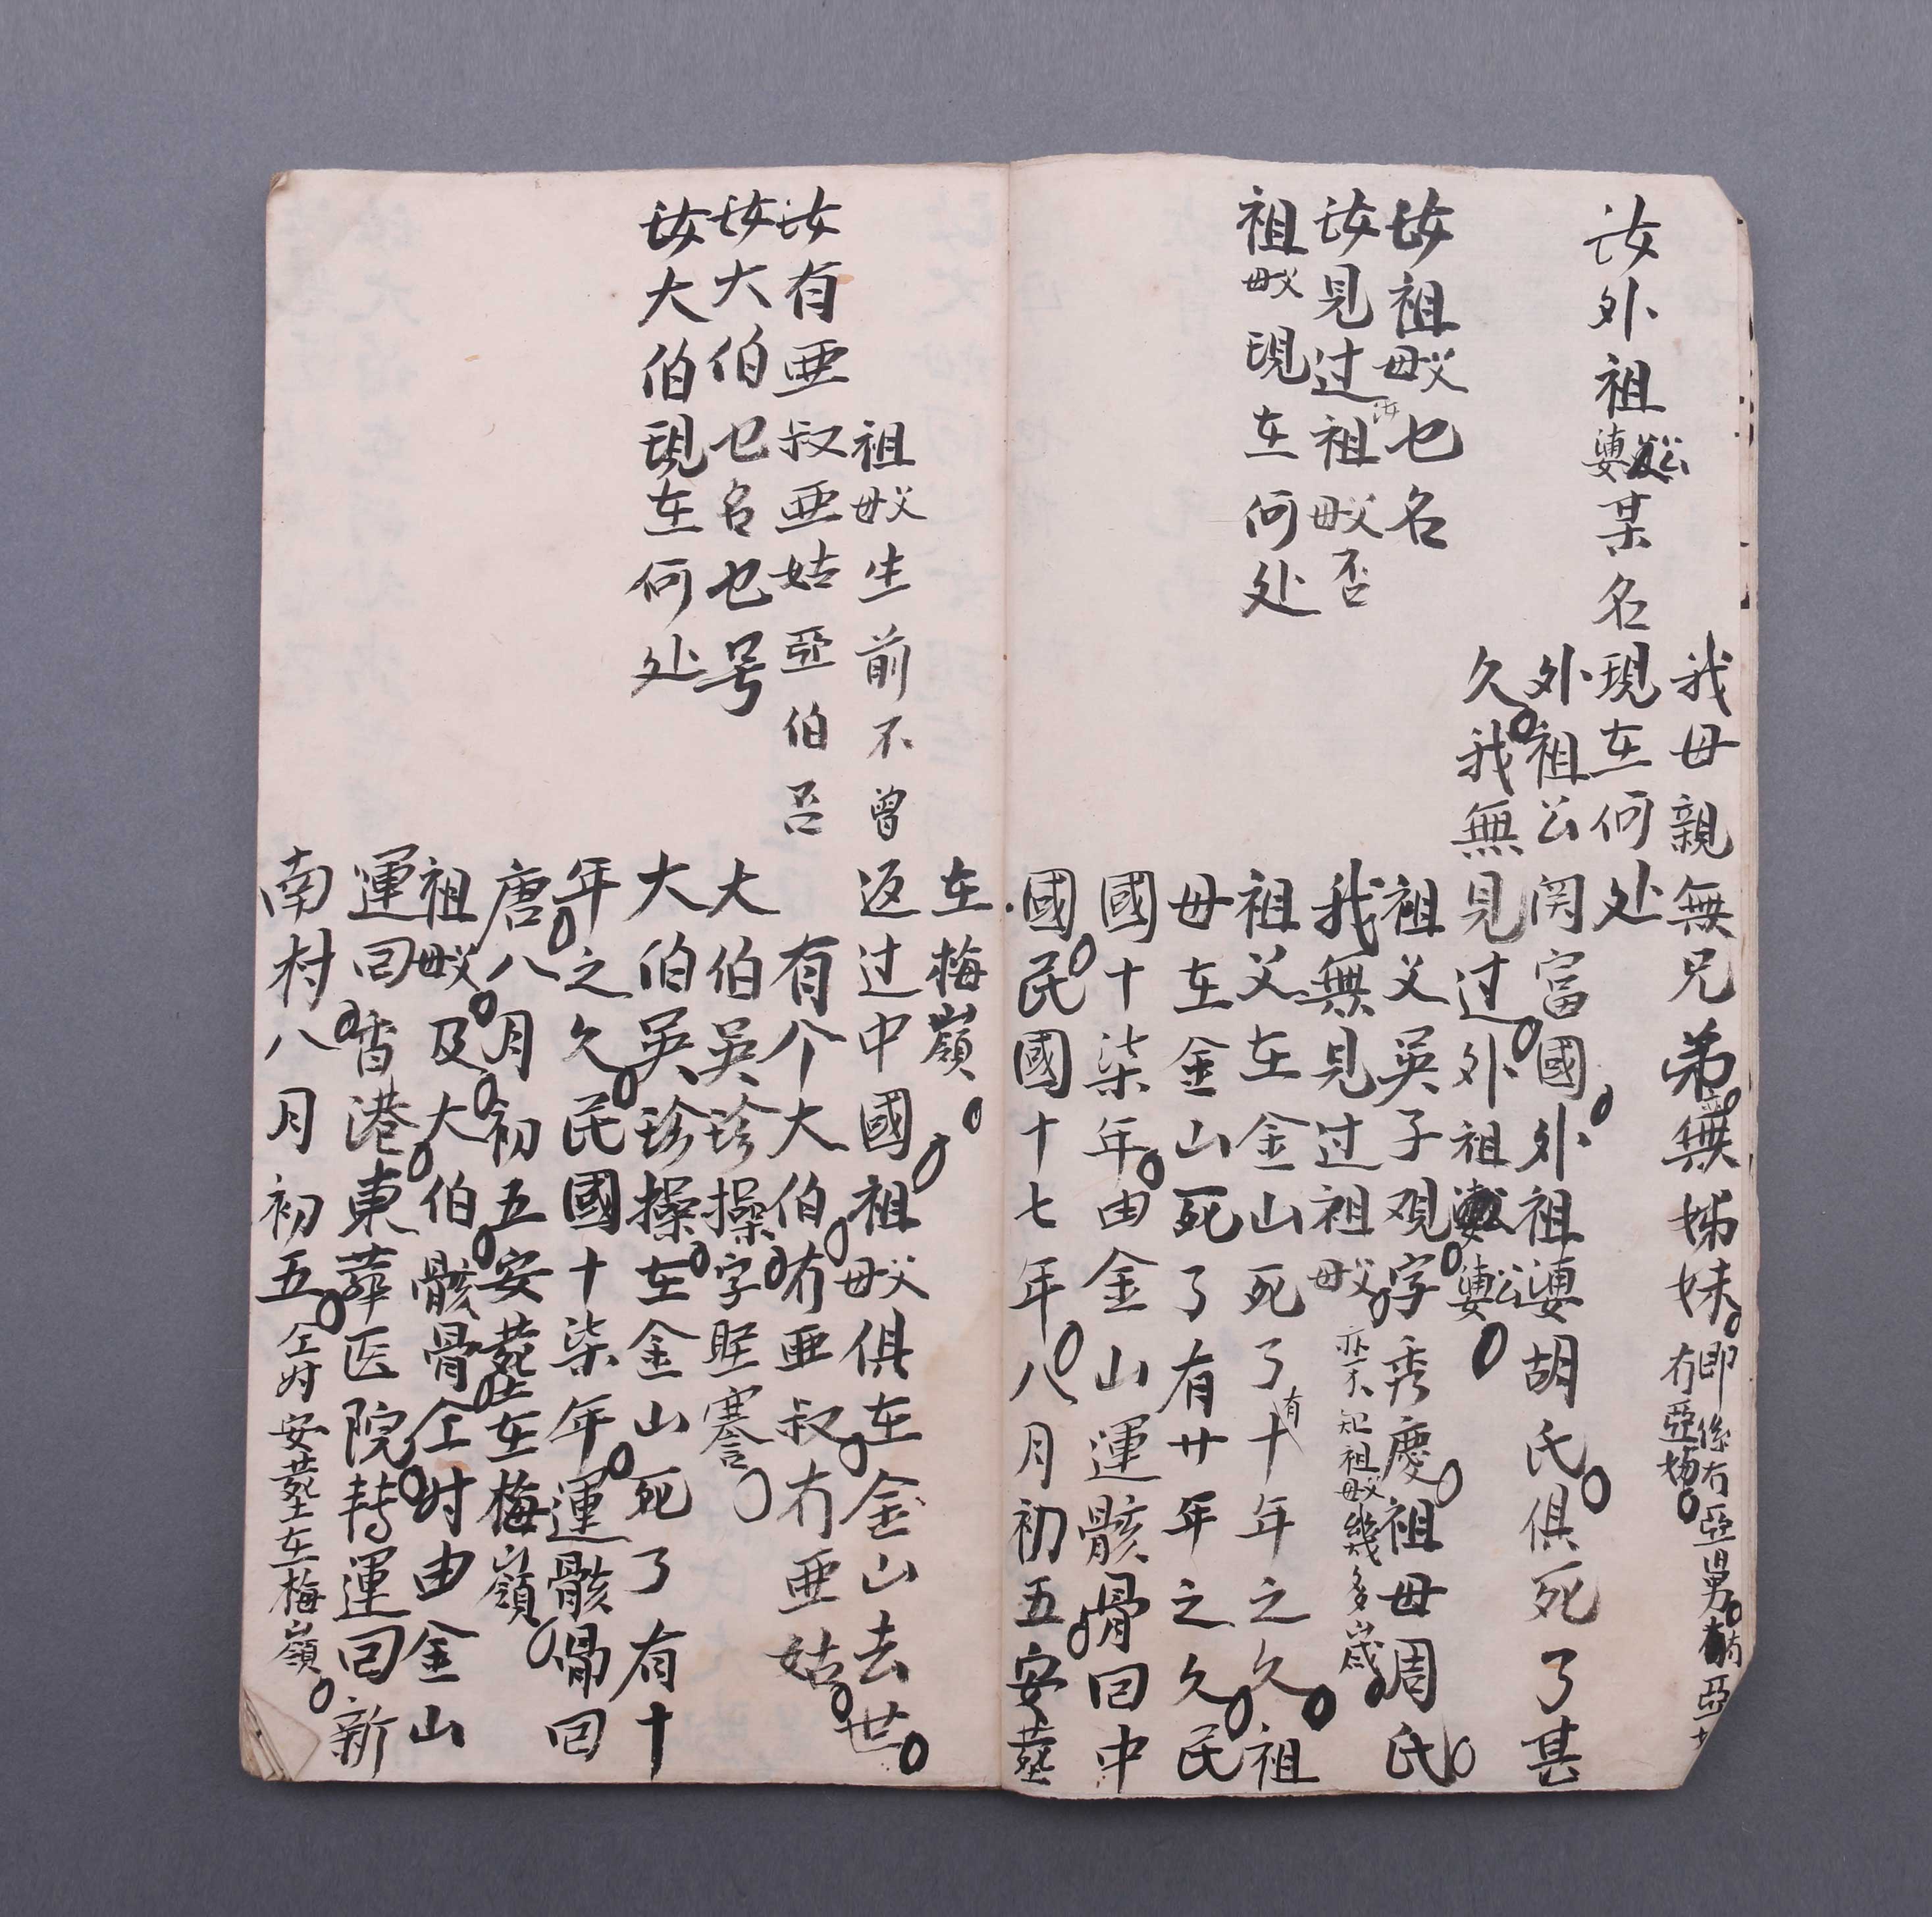 我母親無兄弟無姊妹即係冇亞舅冇亞
冇亞姨
汝外祖公婆某名現在何处
外祖公関富國外祖婆胡氏俱死了甚
久我無見过外祖公婆
汝祖父母乜名
祖父吳子观字秀慶祖母周氏
汝見过汝祖父母否
我無見过祖父母亦不知祖父母幾多歲
祖父母現在何处
祖父在金山死了有十年之久祖
母在金山死了有廿年之久民
國十柒年由金山運骸骨回中
國民國十七年八月初五安葬
在梅嶺
祖父母生前不曾返过中國祖父母俱在金山去世
汝有亜叔亜姑亞伯否
有个大伯冇亜叔冇亜姑
汝大伯乜名乜号
大伯吳珍操字眰謇
汝大伯現在何处
大伯吳珍操在金山死了有十
年之久民國十柒年運骸骨回
唐八月初五安葬在梅嶺
祖父母及大伯骸骨仝时由金山
運回香港東華医院轉運回新
南村八月初五仝时安葬在梅嶺